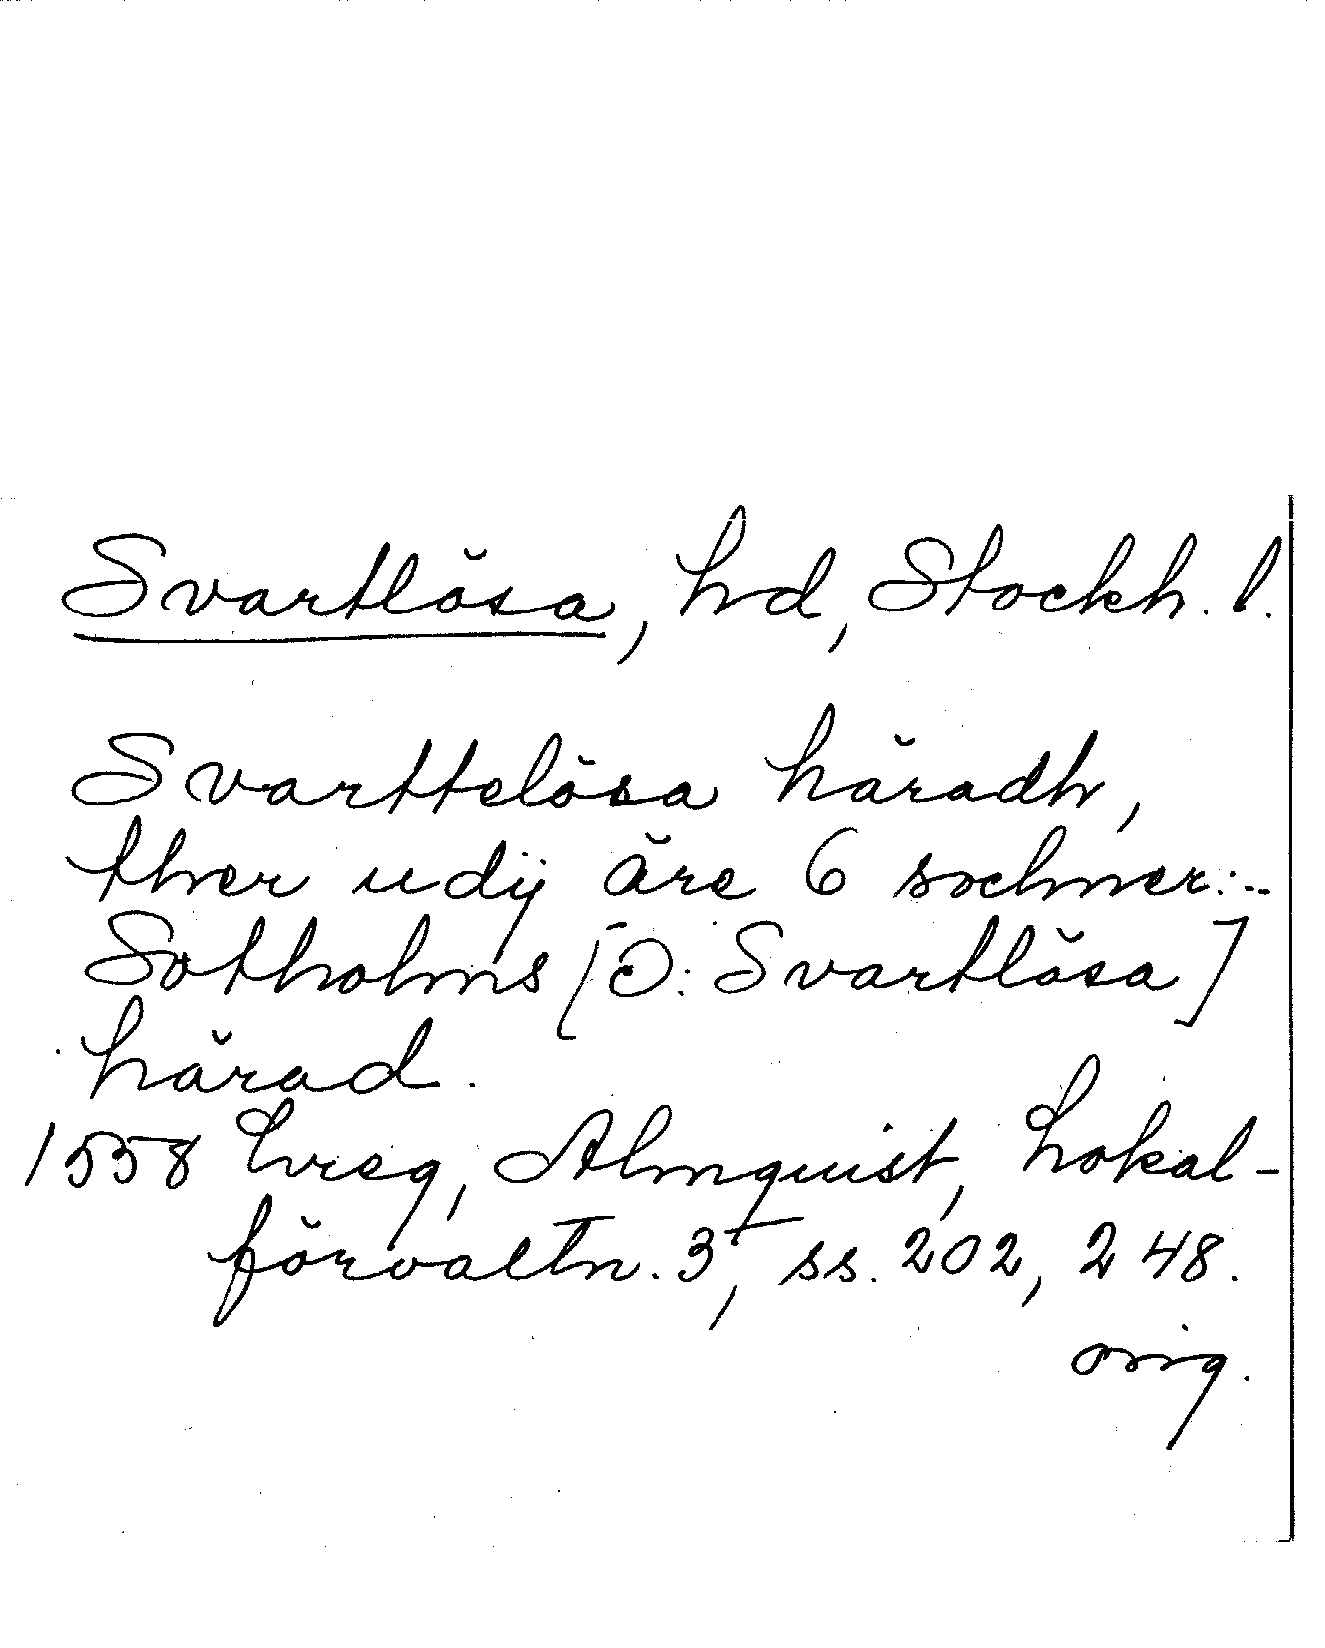 Svartlösa, hd, Stockh. l.
Svarttelösa häradh,
ther udij äre 6 sochner...
Sotholms [ɔ: Svartlösa]
härad.
1558 Lvreg, Almquist, Lokal-
förvaltn. 3, ss. 202, 248.
orig.